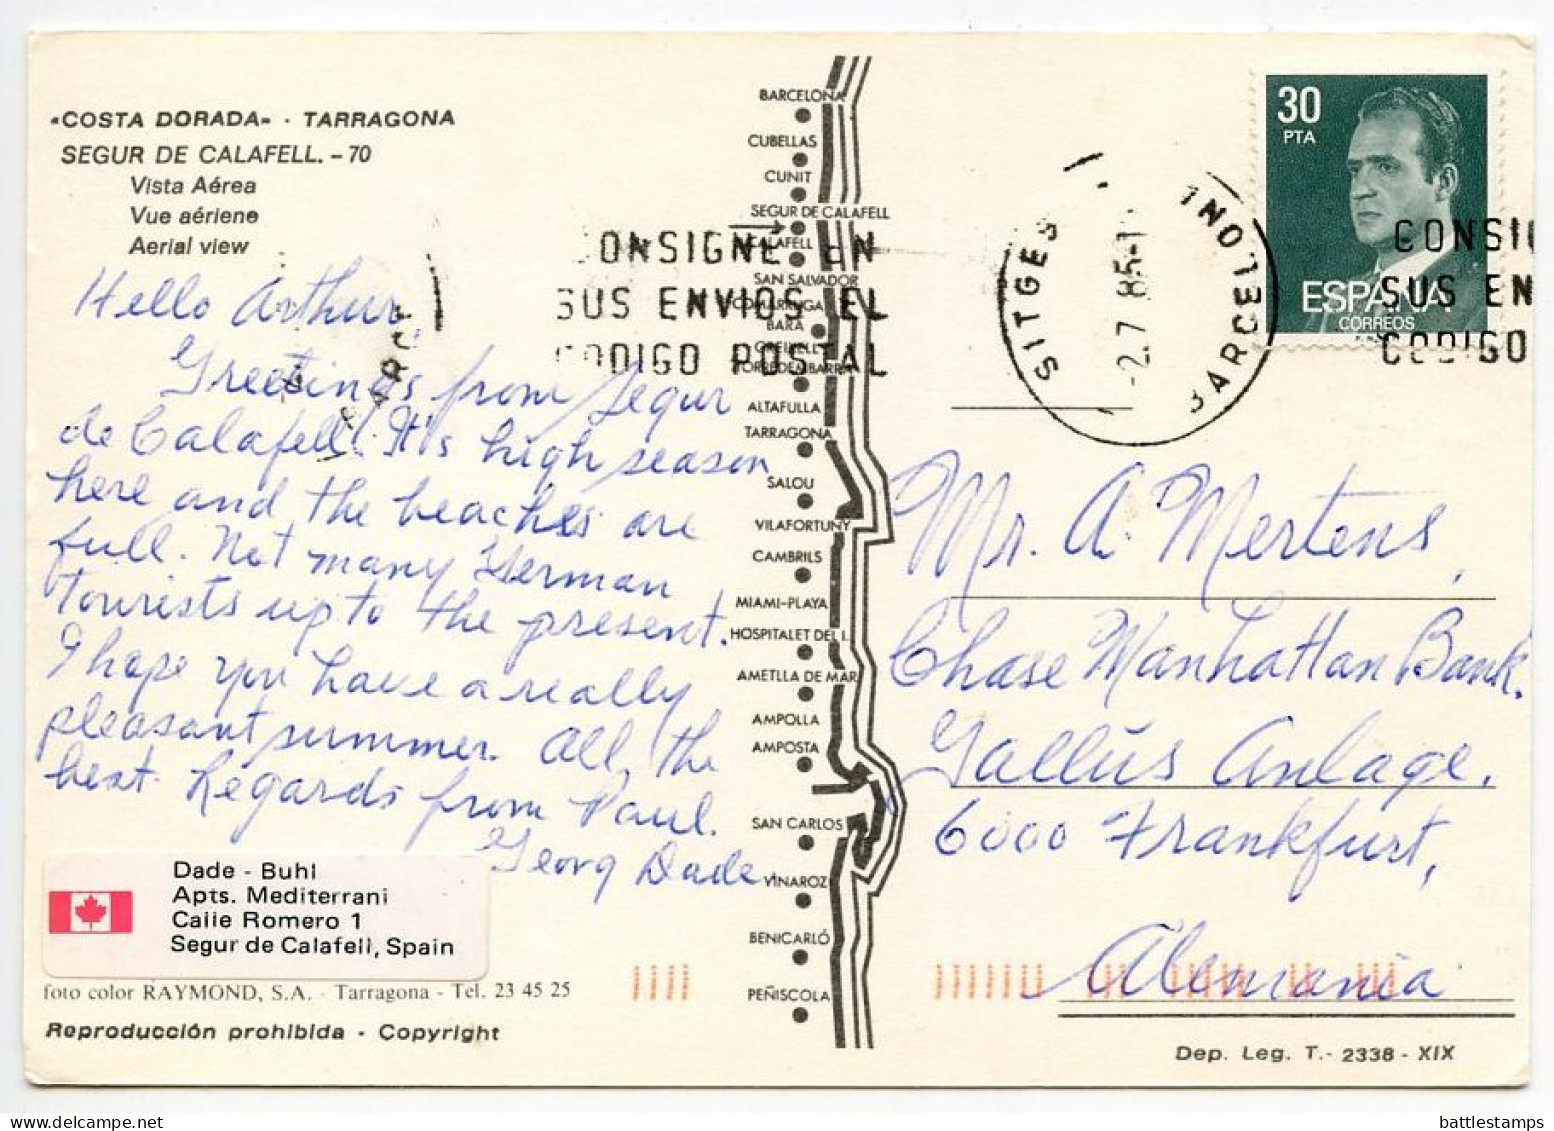 «COSTA DORADA» - TARRAGONA
SEGUR DE CALAFELL. - 70
Vista Aérea
Vue aériene
Aerial view
Hello Arthur,
Greetings from Segur
de Calafell! It's high season
here and the beaches are
full. Not many German
tourists up to the present.
I hope you have a really
pleasant summer. All the
best. Regards from Paul.
Georg Dade.
Dade - Buhl
Apts. Mediterrani
Calle Romero 1
Segur de Calafell, Spain
foto color RAYMOND, S.A. - Tarragona - Tel. 23 45 25
Reproducción prohibida - Copyright
BARCELONA
CUBELLAS
CUNIT
SEGUR DE CALAFELL
CALAFELL
SAN SALVADOR
COMARRUGA
BARA
CREIXELL
TORREDEMBARRA
ALTAFULLA
TARRAGONA
SALOU
VILAFORTUNY
CAMBRILS
MIAMI-PLAYA
HOSPITALET DEL I.
AMETLLA DE MAR
AMPOLLA
AMPOSTA
SAN CARLOS
VINAROZ
BENICARLÓ
PEÑISCOLA
CONSIGNE EN
SUS ENVIOS EL
CODIGO POSTAL
SITGES
-2.7 85-1
BARCELONA
30
PTA
ESPAÑA
CORREOS
CONSI
SUS EN
CODIGO
Mr. A. Mertens,
Chase Manhattan Bank.
Gallüs Anlage.
6000 Frankfurt,
Alemania
Dep. Leg. T.- 2338 - XIX
battlestamps